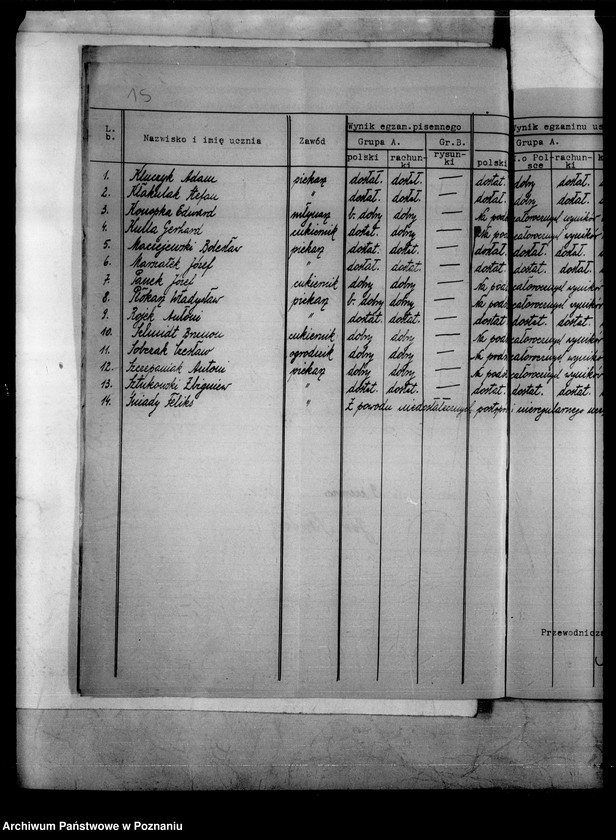 15
L. b. Nazwisko i imię ucznia Zawód Wynik egzam.pisemnego Wynik egzaminu us
Grupa A. Gr.B. Grupa A.
polski rachunki rysunki polski N.o Polsce rachunki
1. Klauzyk Adam piekarz dostat. dostat. — dostat. dobry dostat.
2. Kłakulak Stefan " dostat. dostat. — dostat. dobry dostat.
3. Konopka Edward młynarz b. dobry dobry — Na podst. całorocznych wyników
4. Kulla Gerhard cukiernik dobry dobry — Na podst. całorocznych wyników
5. Maciejewski Bolesław piekarz dostat. dostat. — dostat. dostat. dostat.
6. Marszałek Józef " dostat. dostat. — dostat. dostat. dostat.
7. Panek Józef cukiernik dobry dobry — Na podst. całorocznych wyników
8. Plokarz Władysław piekarz b. dobry dobry — Na podst. całorocznych wyników
9. Rojek Antoni " dostat. dostat. — dostat. dostat. dostat.
10. Schmidt Brunon cukiernik dobry dobry — Na podst. całorocznych wyników
11. Sobczak Czesław ogrodnik dobry dobry — Na podst. całorocznych wyników
12. Szczepaniak Antoni piekarz dobry dobry — Na podst. całorocznych wyników
13. Sztukowski Zbigniew " dostat. dostat. — dostat. dostat. dostat.
14. Śniady Feliks " Z powodu niedostatecznych postępów i nieregularnego
Przewodnicz
Archiwum Państwowe w Poznaniu